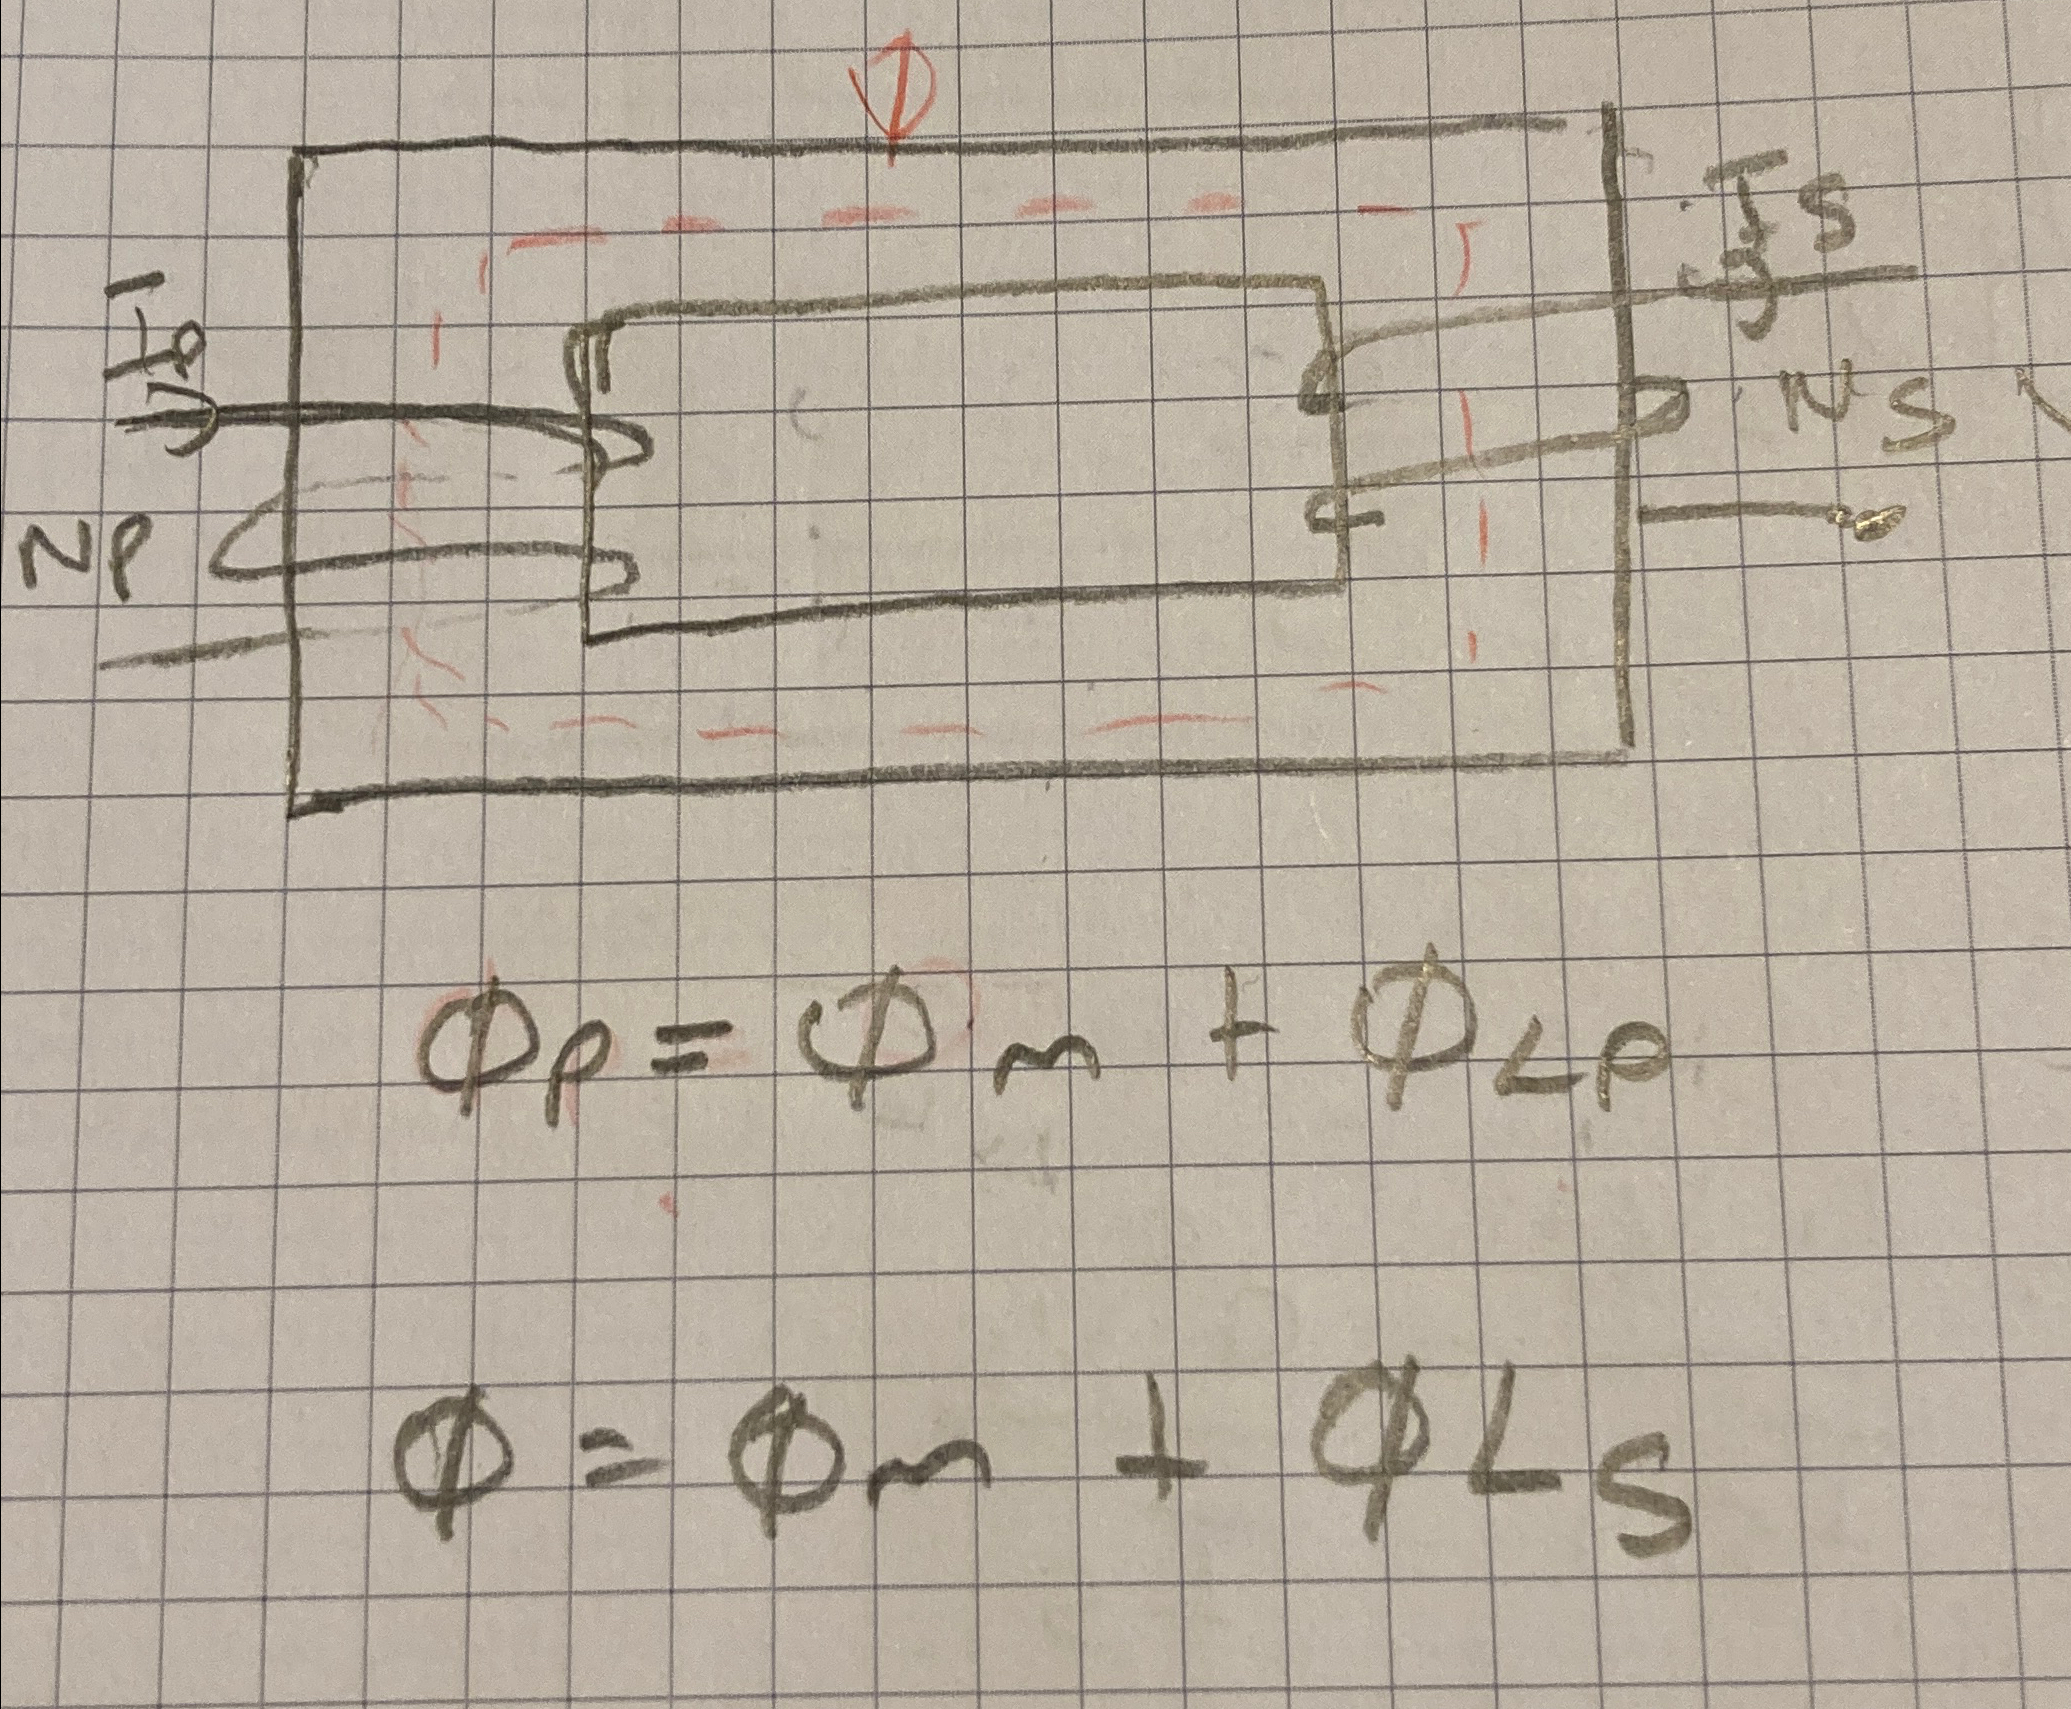 Φ
IP
IS
NP
NS
ΦP = Φm + ΦLP
Φ = Φm + ΦLS